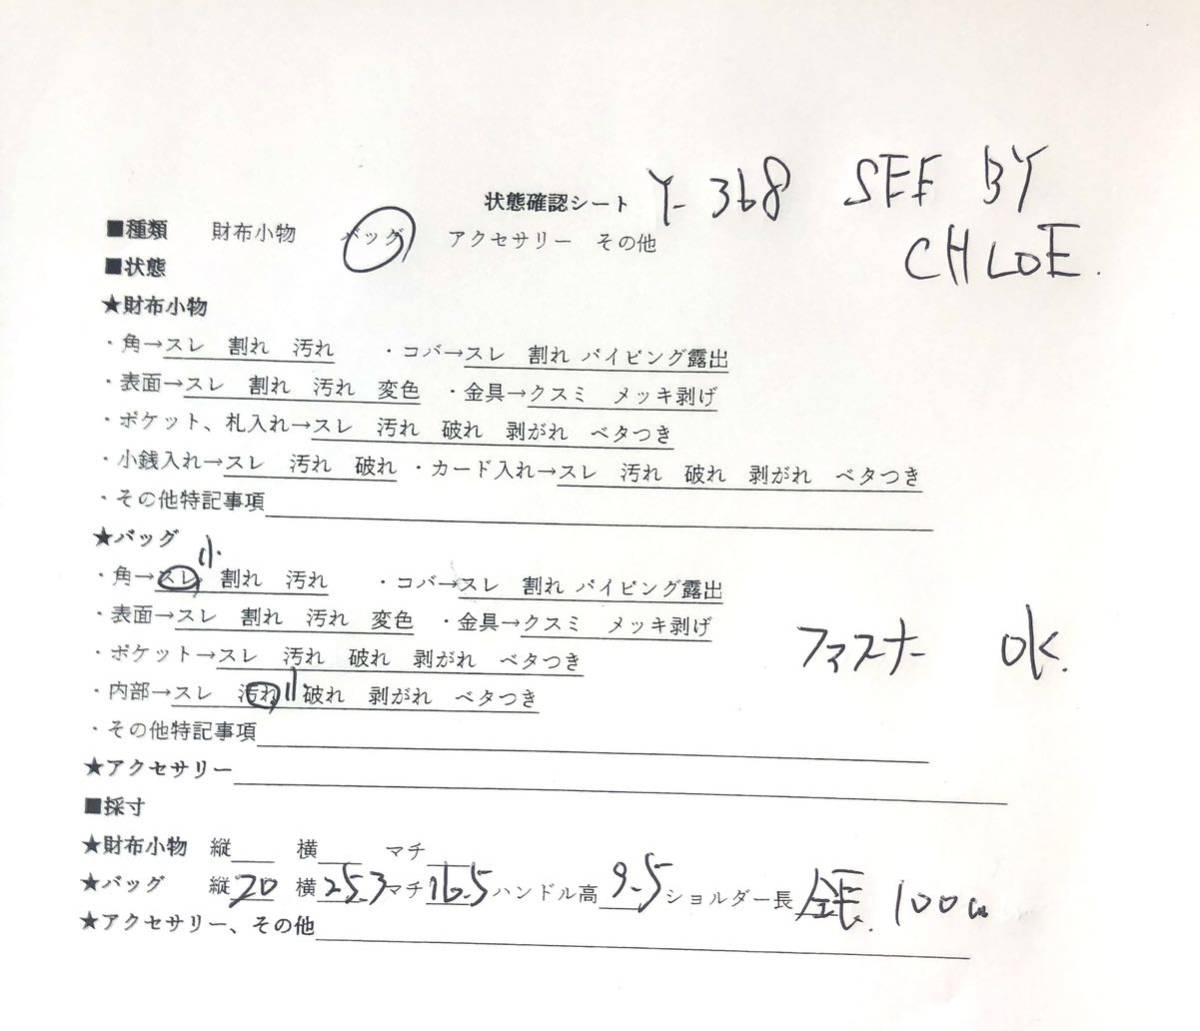 状態確認シート Y-368 SEE BY
CHLOE.
■種類 財布小物 バッグ アクセサリー その他
■状態
★財布小物
・角→スレ 割れ 汚れ ・コバ→スレ 割れ パイピング露出
・表面→スレ 割れ 汚れ 変色 ・金具→クスミ メッキ剥げ
・ポケット、札入れ→スレ 汚れ 破れ 剥がれ ベタつき
・小銭入れ→スレ 汚れ 破れ ・カード入れ→スレ 汚れ 破れ 剥がれ ベタつき
・その他特記事項
★バッグ
小
・角→スレ 割れ 汚れ ・コバ→スレ 割れ パイピング露出
・表面→スレ 割れ 汚れ 変色 ・金具→クスミ メッキ剥げ
ファスナー OK.
・ポケット→スレ 汚れ 破れ 剥がれ ベタつき
・内部→スレ 汚れ 小 破れ 剥がれ ベタつき
・その他特記事項
★アクセサリー
■採寸
★財布小物 縦 横 マチ
★バッグ 縦20 横25.3マチ16.5ハンドル高9.5ショルダー長 全長 100cm
★アクセサリー、その他